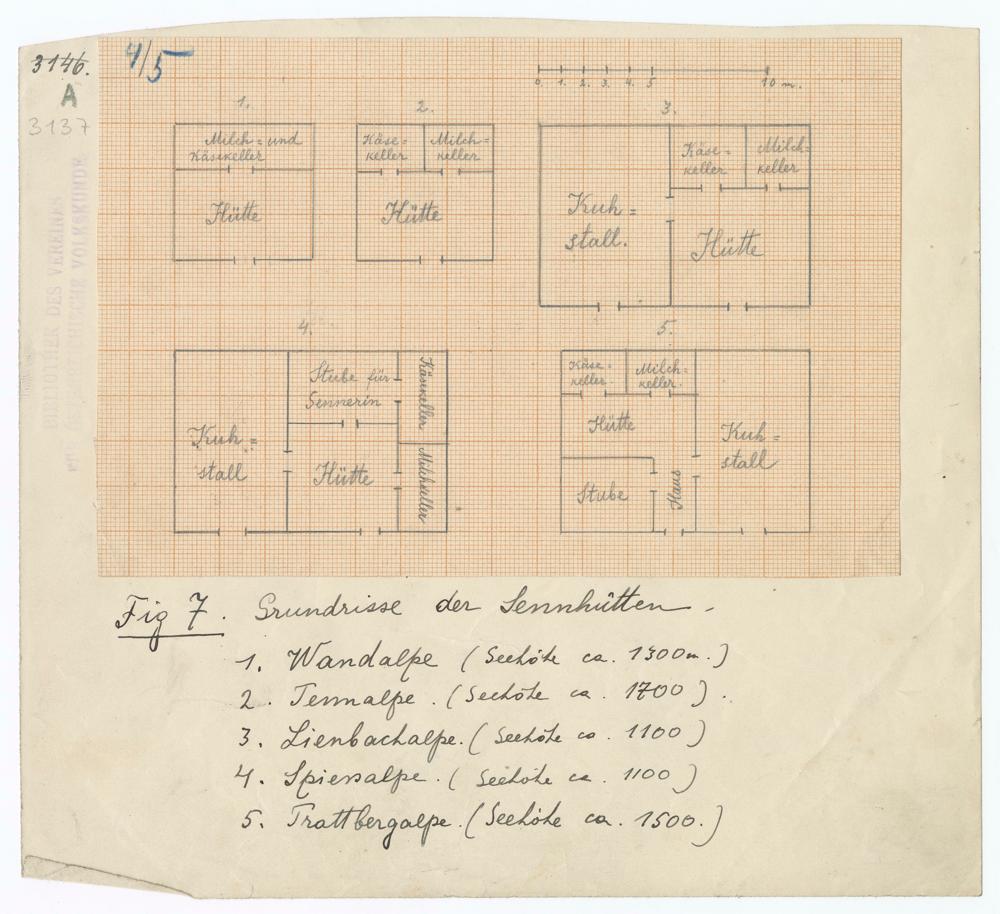 3146.
A
3137
4/5
0. 1. 2. 3. 4. 5 10 m.
1.
Milch = und
Käsekeller
Hütte
2.
Käse =
keller
Milch =
keller
Hütte
3.
Kuh =
stall.
Käse =
keller
Milch =
keller
Hütte
4.
Kuh =
stall
Stube für
Sennerin
Hütte
Käsekeller
Milchkeller
5.
Käse =
keller.
Milch =
keller.
Hütte
Stube
Haus
Kuh =
stall
BIBLIOTHEK DES VEREINES
FÜR ÖSTERREICHISCHE VOLKSKUNDE
Fig 7. Grundrisse der Sennhütten.
1. Wandalpe (Seehöhe ca. 1300m.)
2. Tennalpe. (Seehöhe ca. 1700).
3. Lienbachalpe. (Seehöhe ca. 1100)
4. Spiessalpe. (Seehöhe ca. 1100)
5. Trattbergalpe. (Seehöhe ca. 1500.)